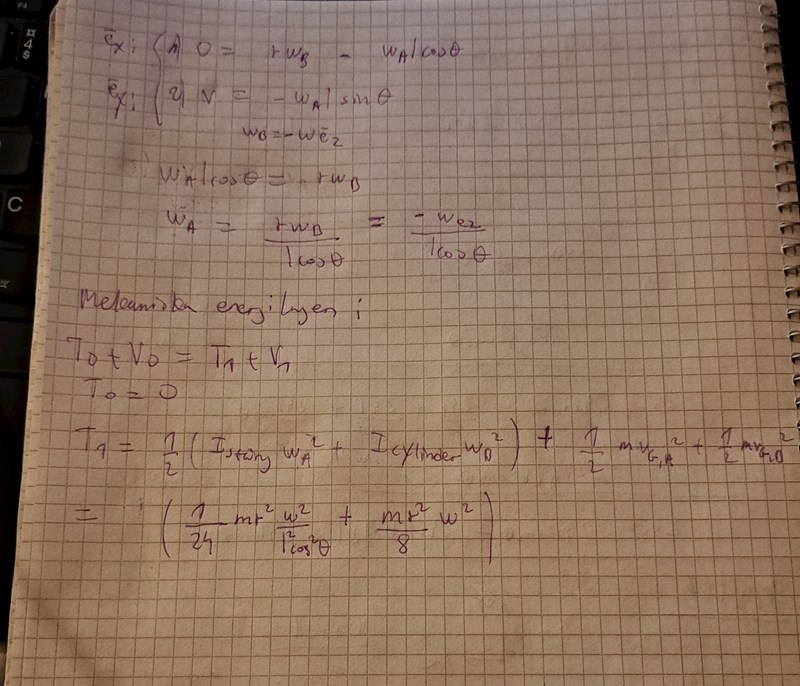 ēx: { 1) 0 = rω_B - ω_A l cosθ
ēy: { 2) v = -ω_A l sinθ
ω_B = -ω ē_z
ω_A l cosθ = rω_B
ω̄_A = rω_B / (l cosθ) = -ω e_z / (l cosθ)
Mekaniska energilagen ;
T_0 + V_0 = T_1 + V_1
T_0 = 0
T_1 = 1/2 ( I_stång ω_A² + I_cylinder ω_B² ) + 1/2 m v_G,A² + 1/2 m v_G,B²
= ( 1/24 mr² ω² / (l² cos²θ) + mr²/8 ω² )